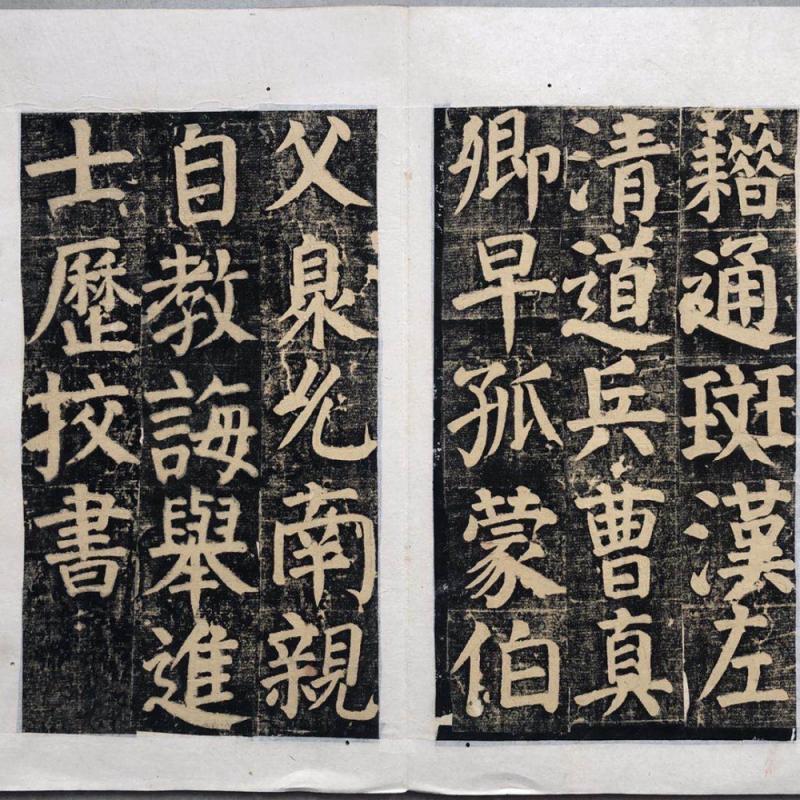 藉通班漢左
清道兵曹真
卿早孤蒙伯
父臮允南親
自教誨舉進
士歷挍書